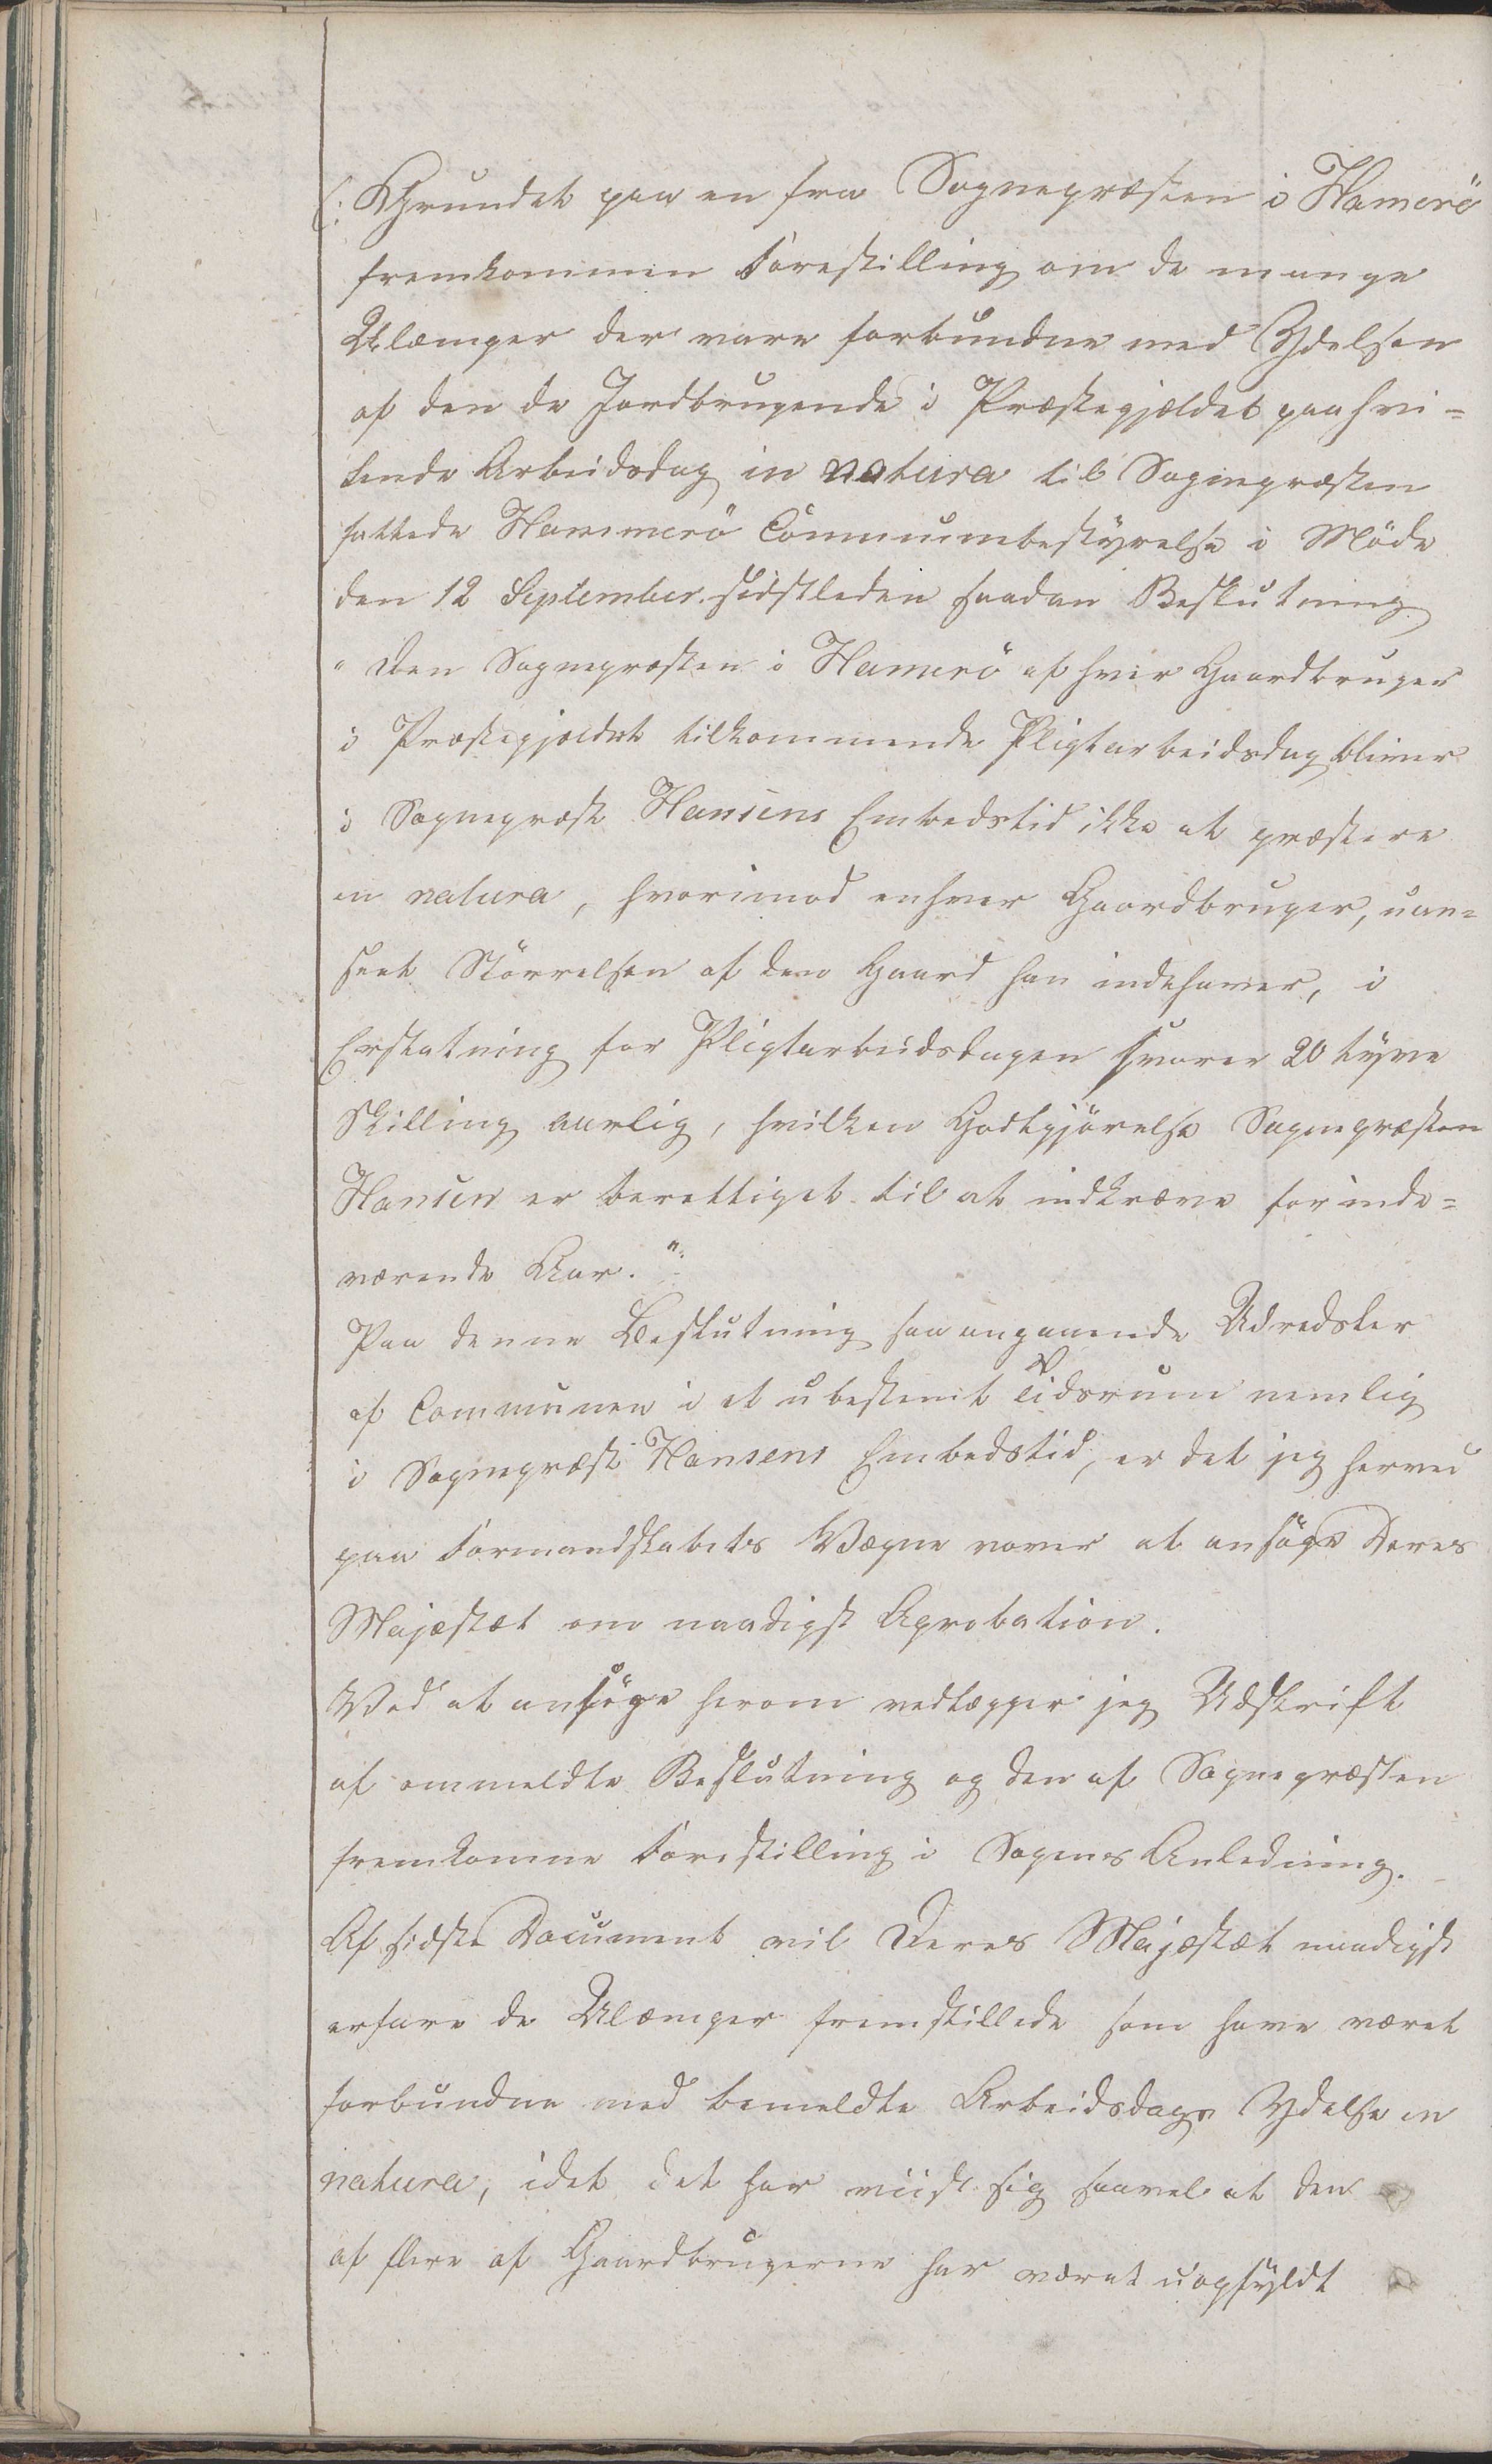 (: Grundet paa en fra Sognepræsten i Hamerö
fremkommen Forestilling om de mange
Ulæmper der vare forbundne med Ydelsen
af den de Jordbrugende i Præstegjældet paahvi-
lende Arbeidsdag in natura til Sognepræsten
fattede Hammerö Communebestyrelse i Möde
den 12 September sidstleden saadan Beslutning
" Den Sognepræsten i Hamerö af hver Gaardbruger
i Præstegjældet tilkommende Pligtarbeidsdag bliver
i Sognepræst Hansens Embedstid ikke at præstere
in natura, hvorimod enhver Gaardbruger, uan-
seet Störrelsen af den Gaard han indehaver, i
Erstatning for Pligtarbeidsdagen svarer 20 tyve
Skilling aarlig, hvilken Godtgjörelse Sognepræsten
Hansen er berettiget til at indkræve for inde-
værende Aar."
Paa denne Beslutning saa angaaende Udredsler
af Communen i et ubestemt Tidsrum nemlig
i Sognepræst Hansens Embedstid, er det jeg herved
paa Formandskabets Vægne vover at ansöge Deres
Majestæt om naadigst Aprobation.
Ved at ansöge herom vedlægger jeg Udskrift
af ommeldte Beslutning og den af Sognepræsten
fremkomne Forestilling i Sagens Anledning.
Af sidste Document vil Deres Majestæt naadigst
erfare de Ulæmper fremstillede som have været
forbundne med bemeldte Arbeidsdags Ydelse in
natura, idet det har viist sig saavel at den
af flere af Gaardbrugerne har været uopfyldt